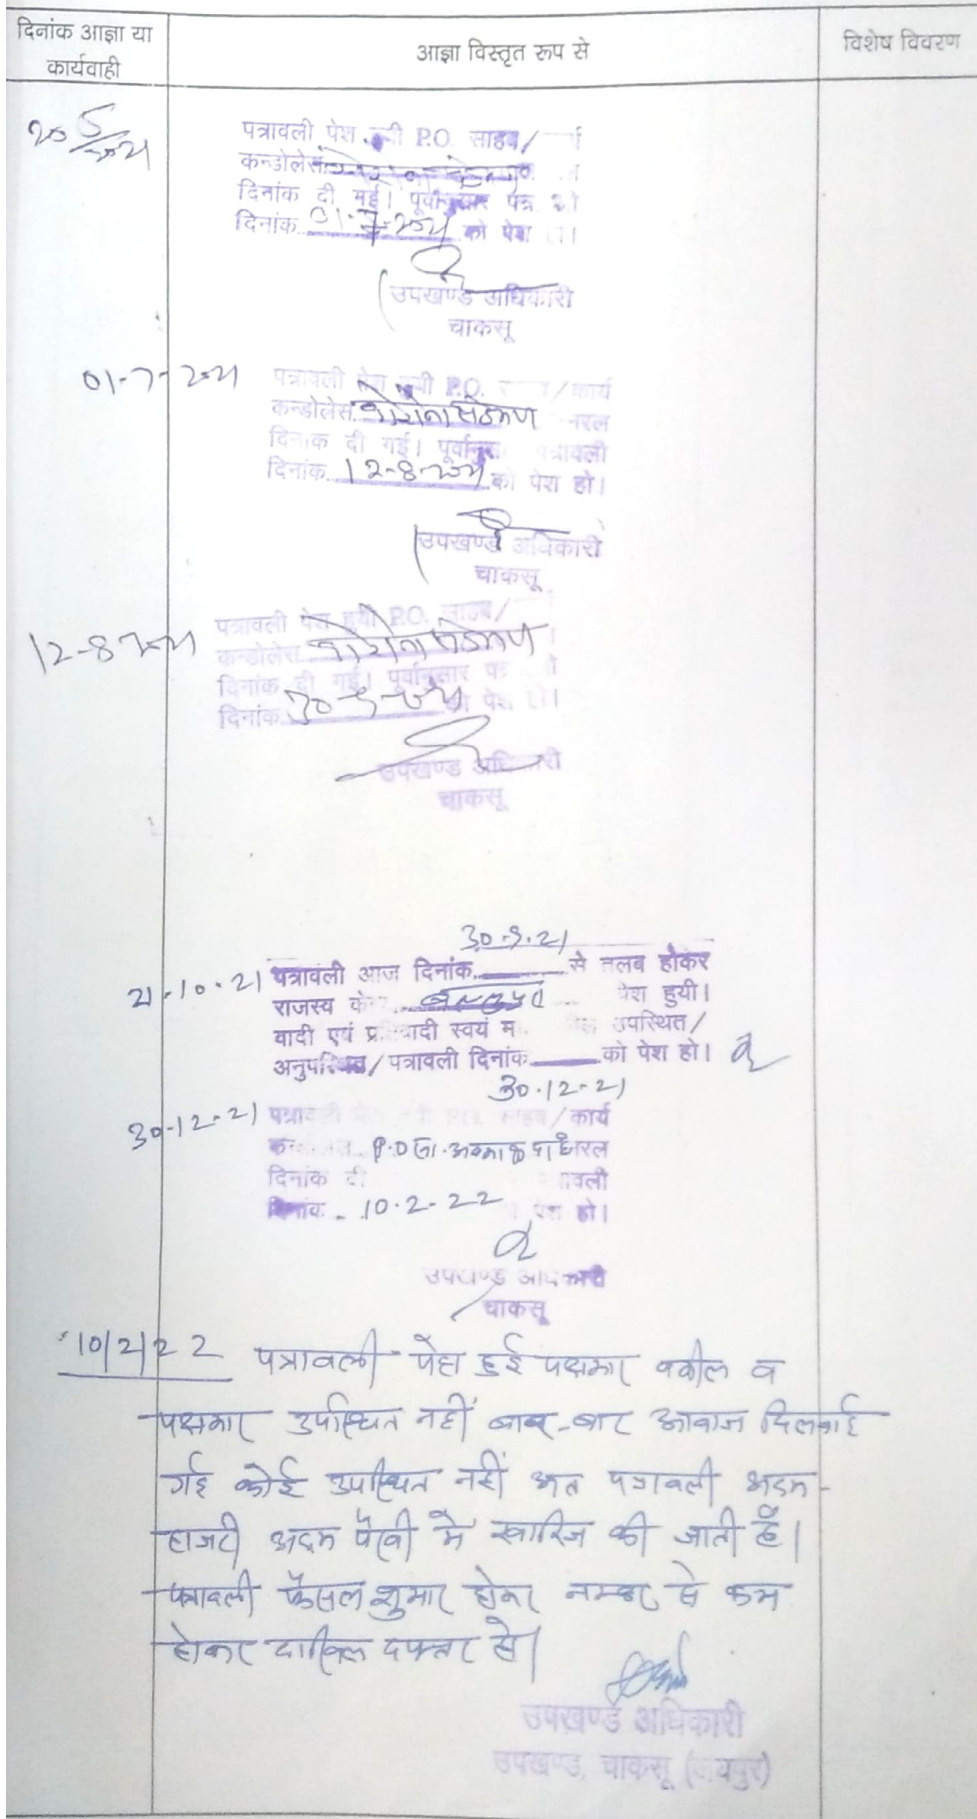 दिनांक आज्ञा या
कार्यवाही
आज्ञा विस्तृत रूप से
विशेष विवरण
पत्रावली पेश P.O. साहब/
कन्डोलेस
दिनांक दी गई। पूर्वानुसार
दिनांक 01-7-2021 को पेश
उपखण्ड अधिकारी
चाकसू
01-7-2021 पत्रावली पेश हुयी P.O. /कार्य
कन्डोलेस कोरोना संक्रमण
दिनांक दी गई। पूर्वानुसार पत्रावली
दिनांक 12-8-2021 को पेश हो।
उपखण्ड अधिकारी
चाकसू
12-8-2021 पत्रावली पेश हुयी P.O. साहब/
कन्डोलेस कोरोना संक्रमण
दिनांक दी गई। पूर्वानुसार
दिनांक पेश
उपखण्ड अधिकारी
चाकसू
30.9.21
21.10.21 पत्रावली आज दिनांक से तलब होकर
राजस्व पेश हुयी।
वादी एवं प्रतिवादी स्वयं उपस्थित/
अनुपस्थित/पत्रावली दिनांक को पेश हो।
30.12.21
30-12-21 /कार्य
P.O
दिनांक दी
दिनांक 10.2-22 पेश हो।
उपखण्ड अधिकारी
चाकसू
10/2/22 पत्रावली पेश हुई पक्षकार वकील व
पक्षकार उपस्थित नहीं बार-बार आवाज दिलवाई
गई कोई उपस्थित नहीं अत पत्रावली अदम
हाजरी अदम पैरवी में खारिज की जाती है।
पत्रावली फैसल शुमार होकर नम्बर से कम
होकर दाखिल दफ्तर हो।
उपखण्ड अधिकारी
उपखण्ड, चाकसू (जयपुर)